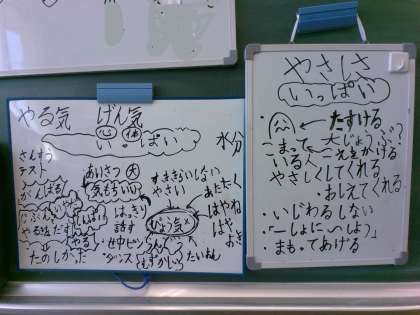 やる気 げん気
心 体
いっぱい
水分
さんすう
テスト
がんばる
じぶんで
やる気だす
たのしかった
あいさつ 大
気もちいい
はっきり
話す
せ中ピン
ダンス
すききらいしない
やさい
びょう気×
あたたかく
はやね
はや
おき
たいおん
やさしさ
いっぱい
たすける
こまって 大じょうぶ?
いる人 こえをかける
やさしくしてくれる
おしえてくれる
・いじわるしない
・「一しょに〜しよう」
・まもってあげる